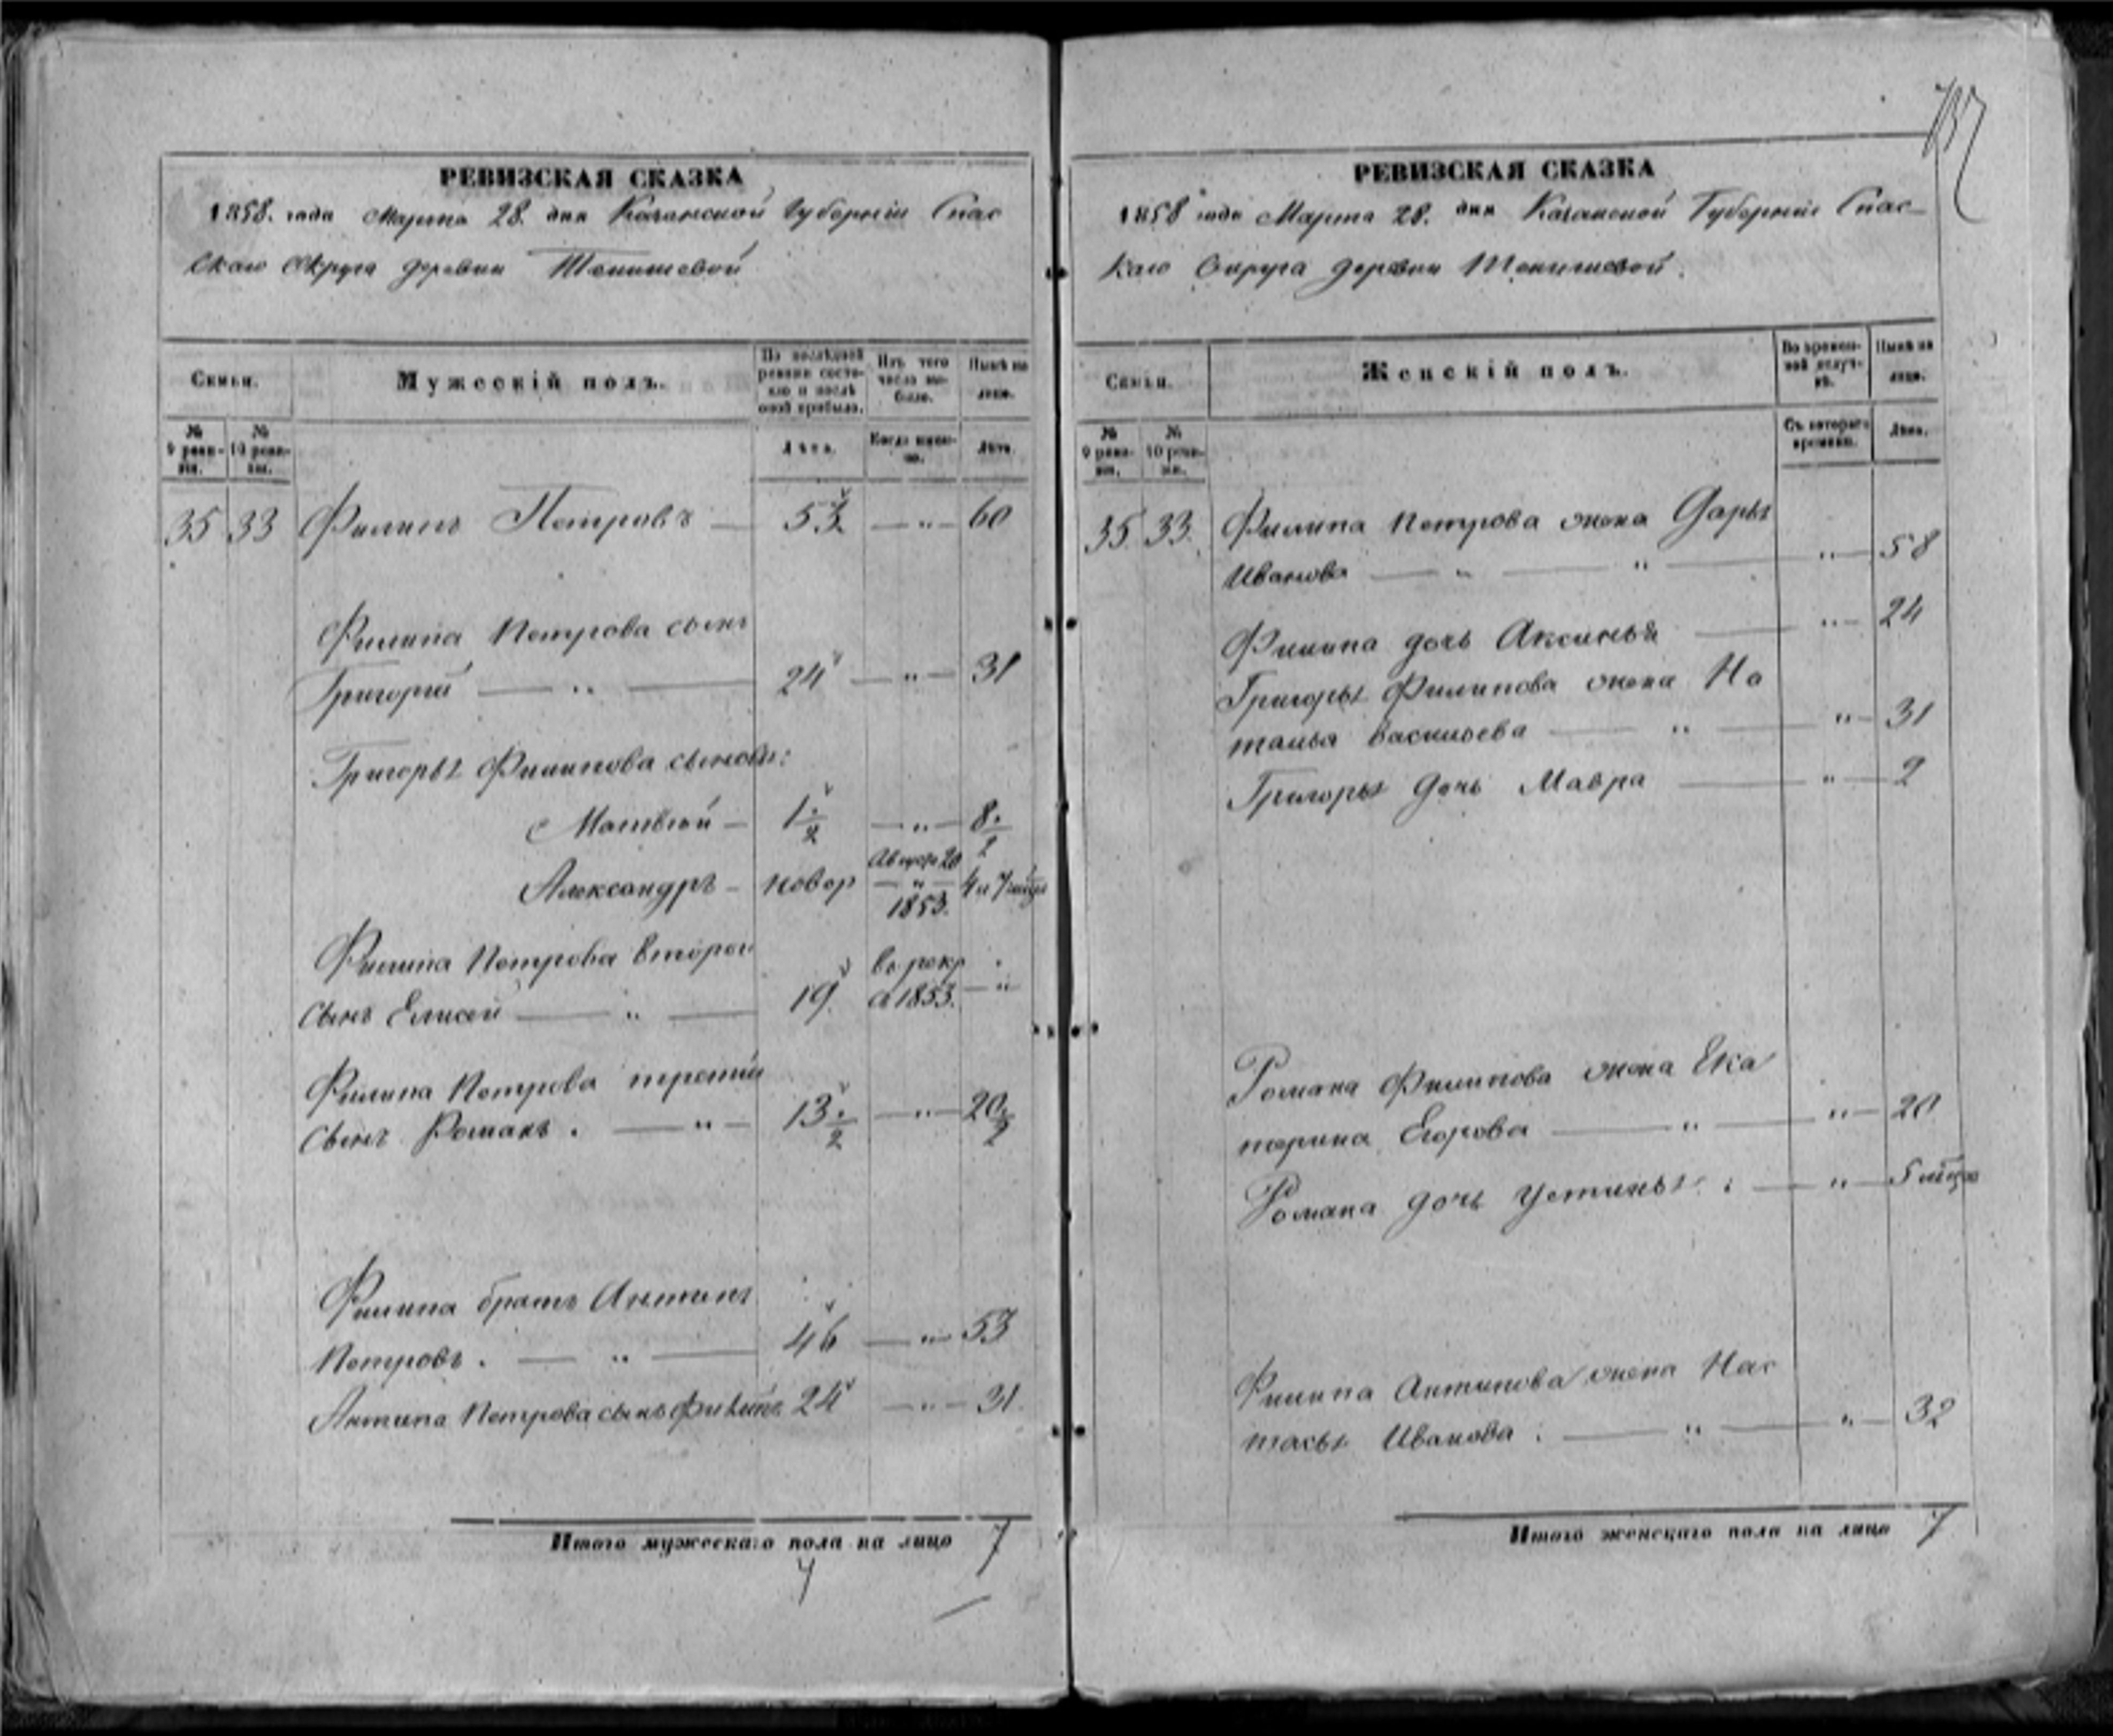 737
РЕВИЗСКАЯ СКАЗКА
1858. года Марта 28. дня Казанской Губерніи Спас
скаго Округа деревни Тенишевой
Семьи.
Мужескій полъ.
По послѣдней ревизіи состояло и послѣ оной прибыло.
Изъ того числа выбыло.
Нынѣ на лицо.
№ 9 ревизіи.
№ 10 ревизіи.
Лѣта.
Когда именно.
Лѣта.
35 33 Филипъ Петровъ — 53 — „ — 60
Филипа Петрова сынъ
Григорій — „ — 24 — „ — 31
Григорья Филипова сыновья:
Матвѣй — 1 ½ — „ — 8 ½
Александръ — новор 20 — „ — 1853. 4 и 7 мцы
Филипа Петрова второй
сынъ Елисей — „ — 19. въ рекр в 1853. — „
Филипа Петрова третій
сынъ Романъ. — „ — 13 ½ — „ — 20 ½
Филипа братъ Антипъ
Петровъ. — „ — 46 — „ — 53
Антипа Петрова сынъ Филипъ 24 — „ — 31.
Итого мужескаго пола на лицо 7
РЕВИЗСКАЯ СКАЗКА
1858 года Марта 28. дня Казанской Губерніи Спас-
каго Округа деревни Тенишевой.
Семьи.
Женскій полъ.
Во временной отлучкѣ.
Нынѣ на лицо.
№ 9 ревизіи.
№ 10 ревизіи.
Съ котораго времени.
Лѣта.
35 33. Филипа Петрова жена Дарья
Иванова — „ — „ — „ — 58
Филипа дочь Аксинья — „ — 24
Григорья Филипова жена На
талья Васильева — „ — „ — 31
Григорья дочь Мавра — „ — 2
Романа Филипова жена Ека
терина Егорова — „ — „ — 20
Романа дочь Устинья: — „ — 5 мцо
Филипа Антипова жена Нас
тасья Иванова: — „ — „ — 32
Итого женскаго пола на лицо 7